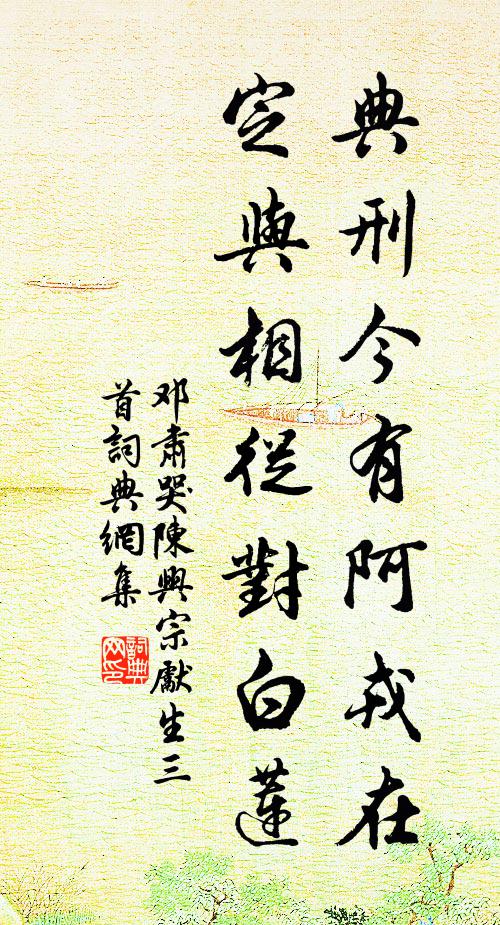 典刑今有阿戎在
定與相從對白蓮
邓肅哭陳興宗獻生三
首詞典網集
詞典
网印